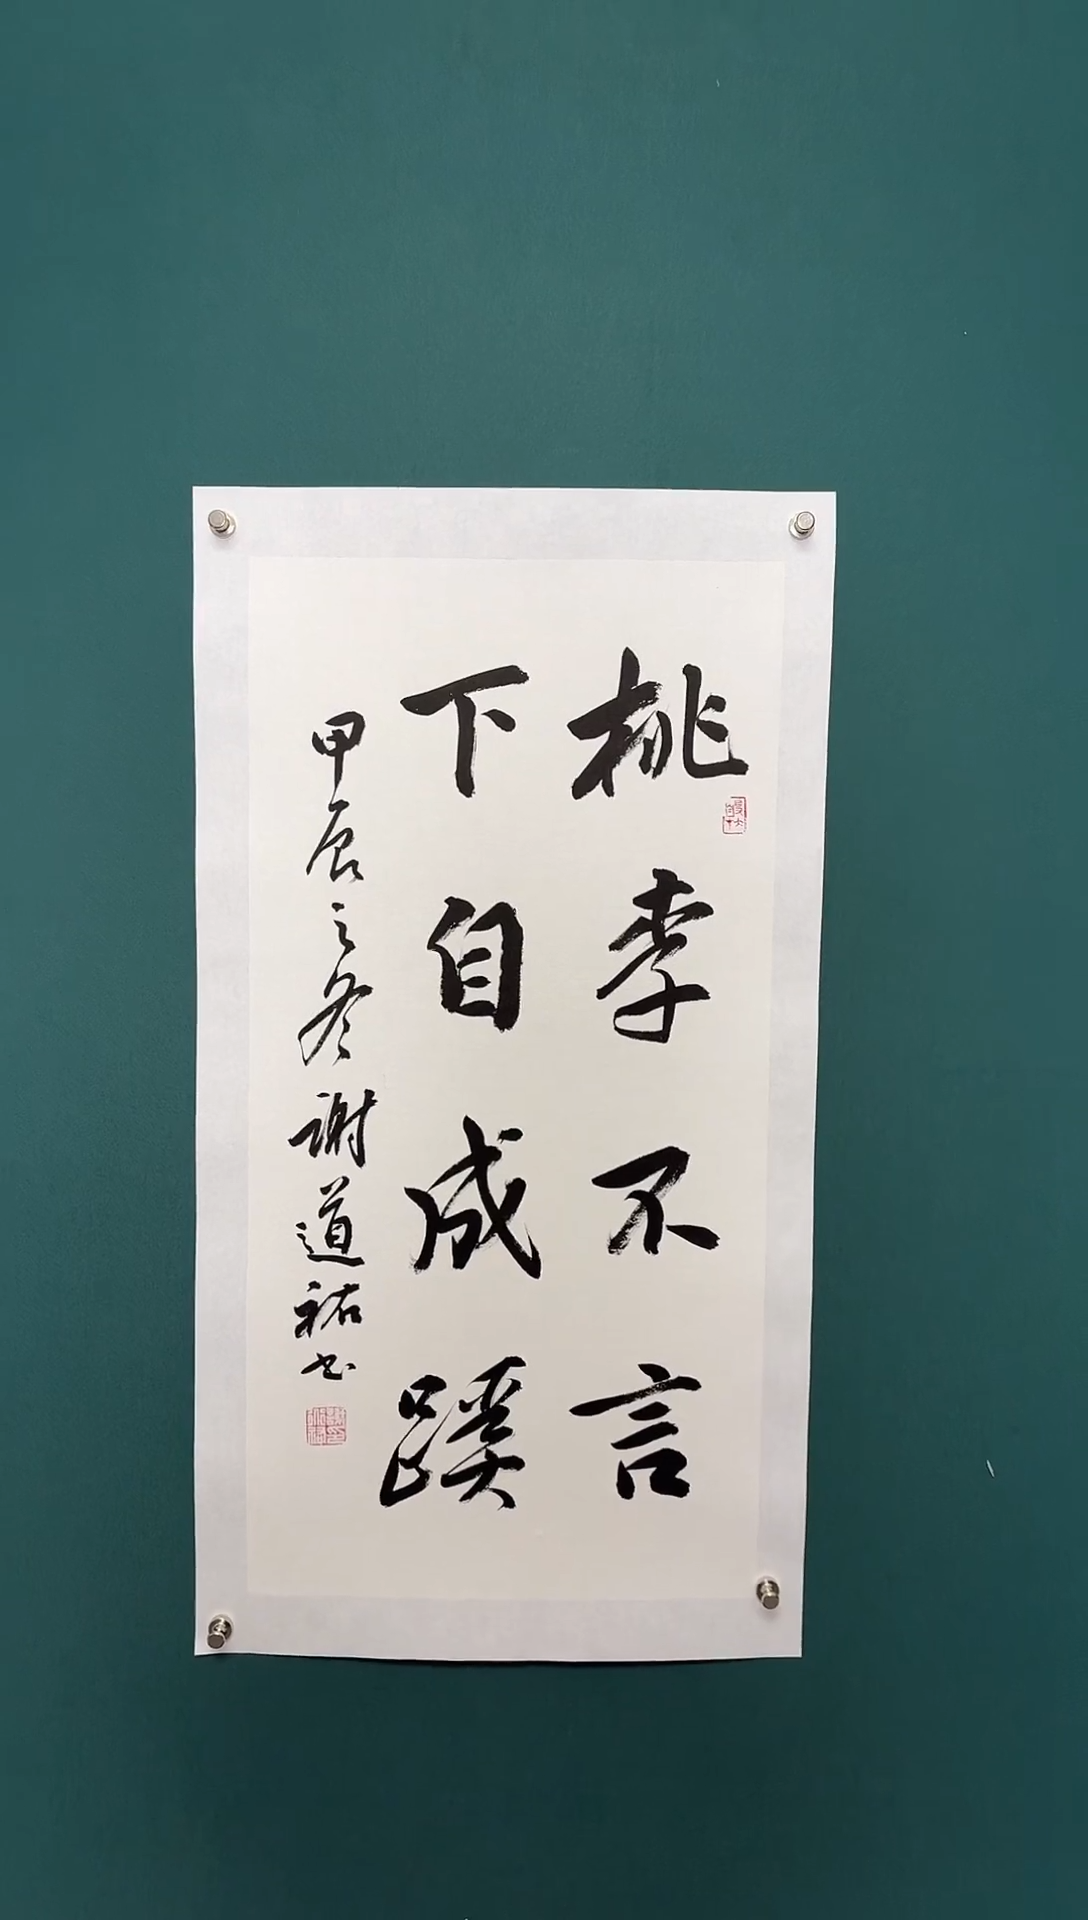 桃李不言
下自成蹊
甲辰之冬谢道祐书